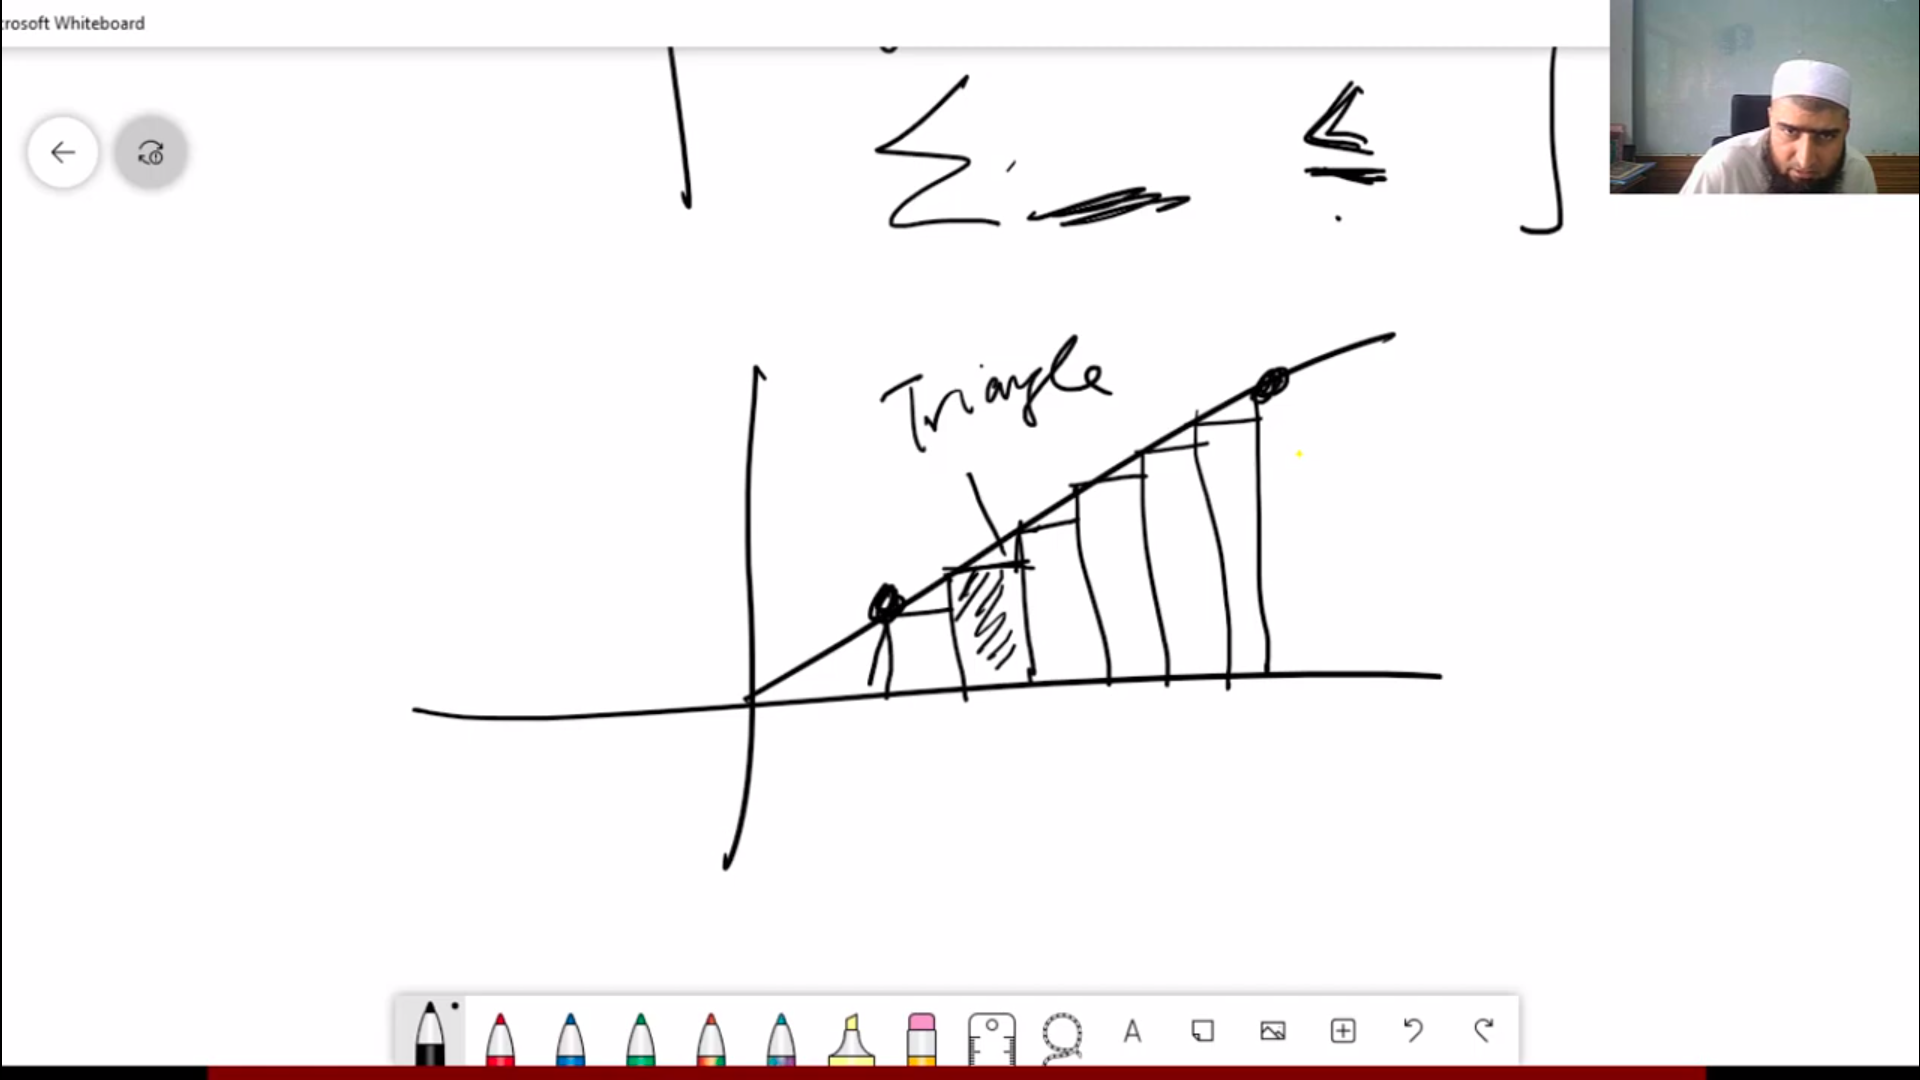 crosoft Whiteboard
Σ ≤
Triangle
A